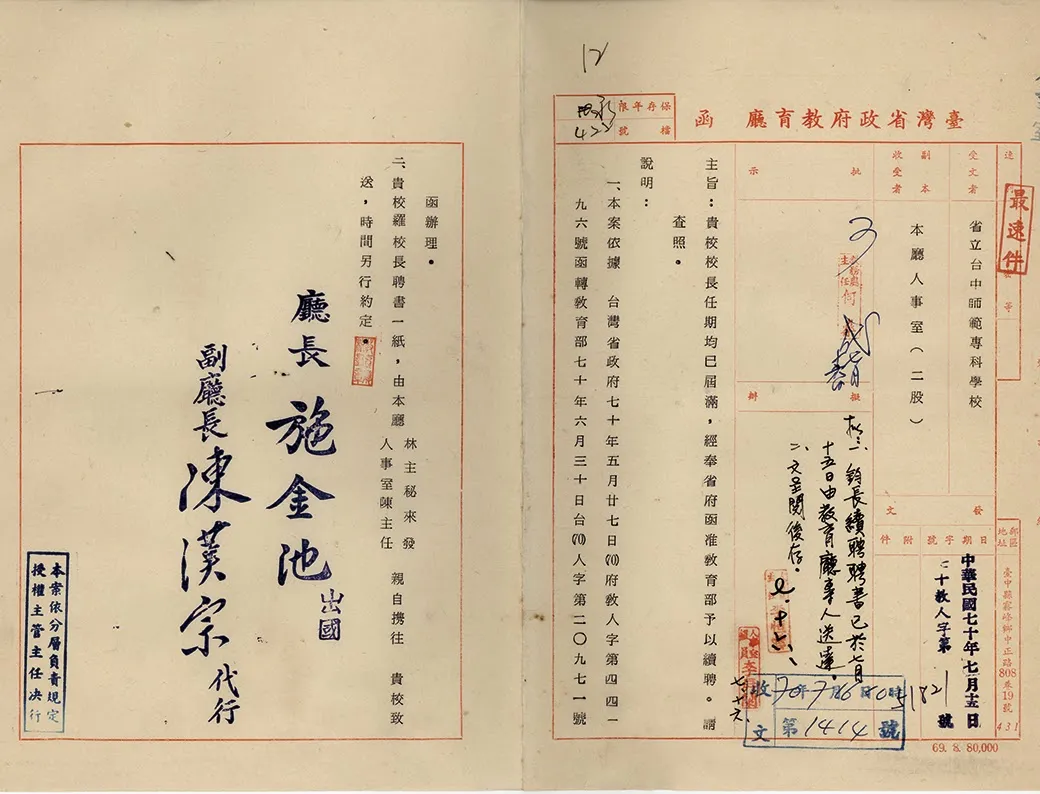 12
臺灣省政府教育廳 函
保存年限
檔號
422
最速件
受文者
省立台中師範專科學校
副本收受者
本廳人事室(二股)
發文
日期
字號
附件
中華民國七十年七月十五日
教人字第
51821
號
郵區
地址
臺中縣霧峰鄉中正路
808
乘
19
號
431
批示
擬辦
一、鈞長續聘聘書已於七月
十五日由教育廳專人送達。
二、文呈閱後存。
收文
70年7月16日
第1414號
主旨:貴校校長任期均已屆滿,經奉省府函准教育部予以續聘。請
查照。
說明:
一、本案依據 台灣省政府七十年五月廿七日(70)府教人字第四四一
九六號函轉教育部七十年六月三十日台(70)人字第二〇九七一號
69. 8. 80,000
函辦理。
二、貴校羅校長聘書一紙,由本廳 林主秘來發 人事室陳主任 親自携往 貴校致
送,時間另行約定。
廳長 施金池 出國
副廳長 陳漢宗 代行
本案依分層負責規定
授權主管主任决行